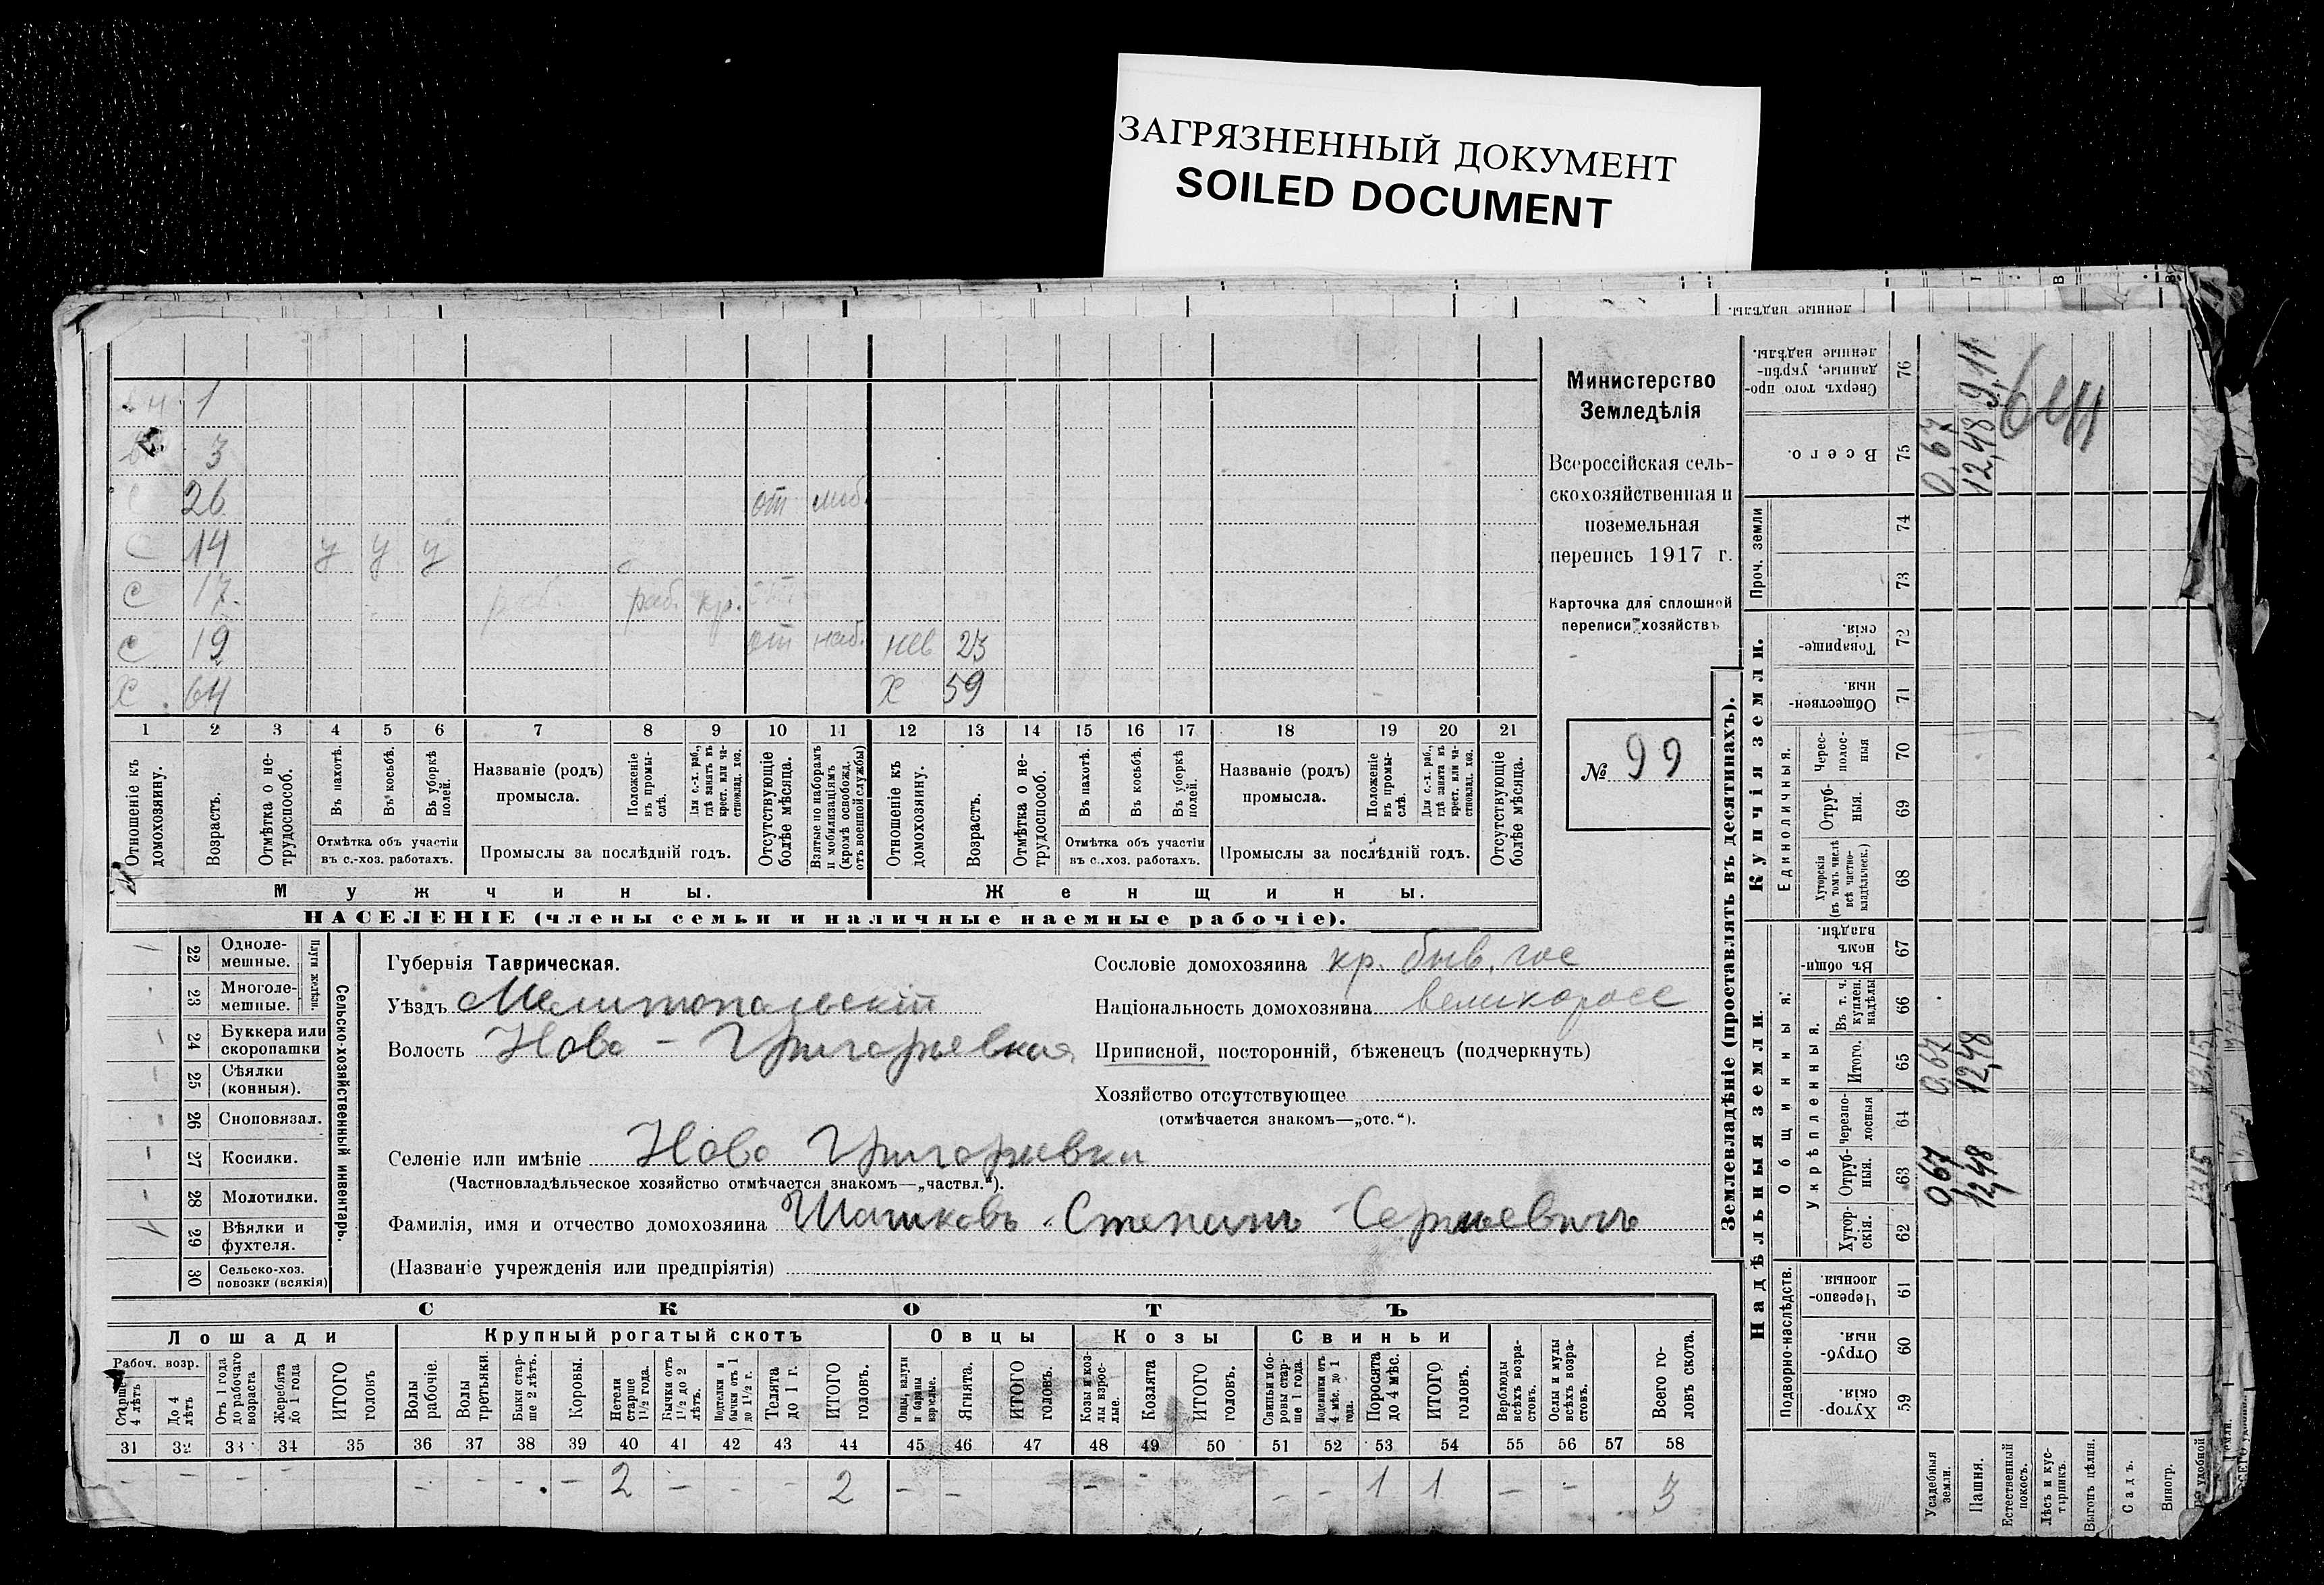 ЗАГРЯЗНЕННЫЙ ДОКУМЕНТ
SOILED DOCUMENT
1
3
26 от моб.
14 у у у
с 17 раб. раб. кр. от
с 19 от наб. нев 23
х 64 х 59
1 2 3 4 5 6 7 8 9 10 11 12 13 14 15 16 17 18 19 20 21
Отношеніе къ домохозяину.
Возрастъ.
Отмѣтка о не-трудоспособ.
Въ пахотѣ.
Въ косьбѣ.
Въ уборкѣ полей.
Отмѣтка объ участіи
въ с.-хоз. работахъ.
Названіе (родъ)
промысла.
Положеніе въ промы-слѣ.
Для с.-х. раб., гдѣ занятъ въ крест. или ча-стновлад. хоз.
Промыслы за послѣдній годъ.
Отсутствующіе болѣе мѣсяца.
Взятые по наборамъ и мобилизаціямъ (кромѣ освобожд. отъ военной службы)
Отношеніе къ домохозяину.
Возрастъ.
Отмѣтка о не-трудоспособ.
Въ пахотѣ.
Въ косьбѣ.
Въ уборкѣ полей.
Отмѣтка объ участіи
въ с.-хоз. работахъ.
Названіе (родъ)
промысла.
Положеніе въ промы-слѣ.
Для с.-х. раб., гдѣ занята въ крест. или ча-стновлад. хоз.
Промыслы за послѣдній годъ.
Отсутствующіе болѣе мѣсяца.
Мужчины.
Женщины.
НАСЕЛЕНІЕ (члены семьи и наличные наемные рабочіе).
Министерство
Земледѣлія
Всероссійская сель-
скохозяйственная и
поземельная
перепись 1917 г.
Карточка для сплошной
переписи хозяйствъ
№ 99
22 Одноле-мешные.
23 Многоле-мешные.
Плуги желѣзн.
24 Буккера или скоропашки
25 Сѣялки (конныя).
26 Сноповязал.
27 Косилки.
28 Молотилки.
29 Вѣялки и фухтеля.
30 Сельско-хоз. повозки (всякія)
Сельско-хозяйственный инвентарь.
Губернія Таврическая.
Уѣздъ Мелитопольскій
Волость Ново-Григорьевская
Селеніе или имѣніе Ново Григорьевка
(Частновладѣльческое хозяйство отмѣчается знакомъ—„частвл.“).
Фамилія, имя и отчество домохозяина Шашковъ Степанъ Сергѣевичъ
(Названіе учрежденія или предпріятія)
Сословіе домохозяина кр. быв. гос
Національность домохозяина великоросс
Приписной, посторонній, бѣженецъ (подчеркнуть)
Хозяйство отсутствующее
(отмѣчается знакомъ—„отс.“).
СКОТЪ
Лошади
Рабоч. возр.
Старше 4 лѣтъ
До 4 лѣтъ
Отъ 1 года до рабочаго возраста
Жеребята до 1 года
ИТОГО головъ
Крупный рогатый скотъ
Волы рабочіе.
Волы третьяки.
Быки стар-ше 2 лѣтъ.
Коровы.
Нетели старше 1½ года.
Бычки отъ 1½ до 2 лѣтъ.
Подтелки и бычки отъ 1 до 1½ г.
Телята до 1 г.
ИТОГО головъ.
Овцы
Овцы, валухи и бараны взрослые.
Ягнята.
ИТОГО головъ.
Козы
Козы и коз-лы взрос-лые.
Козлята
ИТОГО головъ.
Свиньи
Свиньи и бо-ровы стар-ше 1 года.
Подсвинки отъ 4 мѣс. до 1 года.
Поросята до 4 мѣс.
ИТОГО головъ.
Верблюды всѣхъ возра-стовъ.
Ослы и мулы всѣхъ возра-стовъ.
Всего го-ловъ скота.
31 32 33 34 35 36 37 38 39 40 41 42 43 44 45 46 47 48 49 50 51 52 53 54 55 56 57 58
- - - - - - - - 2 - - - 2 - - - - - - 1 1 - - 3
Землевладѣніе (проставлять въ десятинахъ).
Купчія земли.
Надѣльныя земли
Сверхъ того про-данные, укрѣп-ленные надѣлы. 76
Всего. 75
Проч. земли 74 73
Товарище-скія. 72
Обществен-ныя. 71
Единоличныя.
Черес-полос-ныя 70
Отруб-ныя. 69
Хуторскія (въ томъ числѣ всѣ частно-владѣльческ.) 68
Въ общи-номъ владѣн. 67
Общинныя:
Укрѣпленныя.
Въ т. ч. куплен. надѣлы 66
Итого. 65
Черезпо-лосныя 64
Отруб-ныя. 63
Хутор-скія. 62
Подворно-наслѣдств.
Черезпо-лосныя. 61
Отруб-ныя. 60
Хутор-скія. 59
Усадебныя земли. 0,67 0,67 0,67
Пашня. 12,48 12,48 12,48 9,11
Естественный покосъ.
Лѣсъ и кус-тарникъ.
Выгонъ цѣлин.
Садъ.
Виногр.
удобной
13,15
ленные надѣлы.